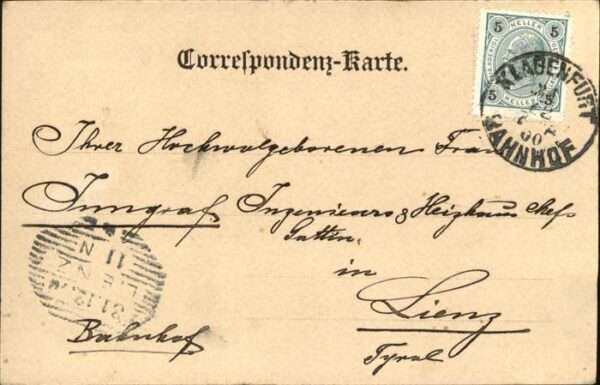 Correspondenz-Karte.
5 HELLER 5
5 HELLER 5
KLAGENFURT
BAHNHOF
Ihrer Hochwolgeborenen Frau
Inngraf Ingenieurs & Heizhaus Chefs
Gattin
in
Lienz
Tyrol
Bahnhof
LIENZ
11 N